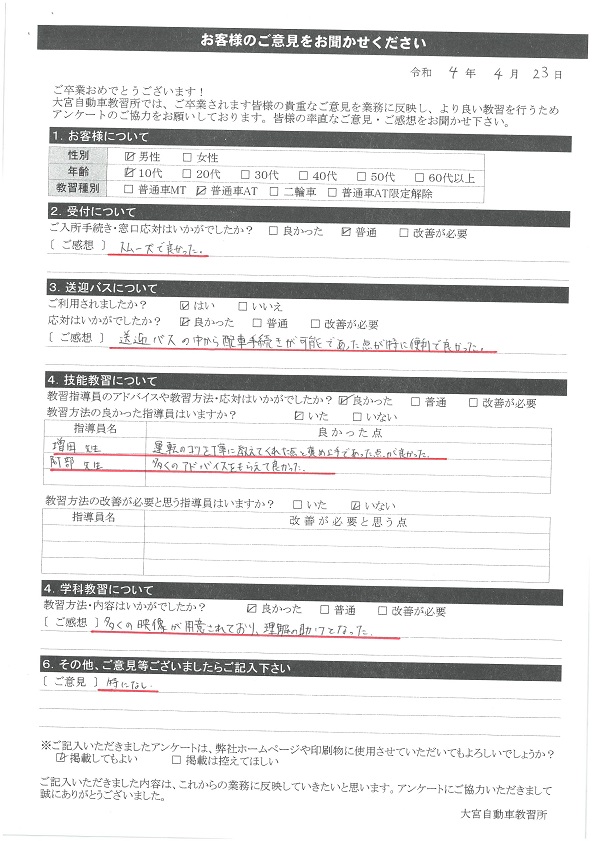 お客様のご意見をお聞かせください
令和 4 年 4 月 23 日
ご卒業おめでとうございます！
大宮自動車教習所では、ご卒業されます皆様の貴重なご意見を業務に反映し、より良い教習を行うため
アンケートのご協力をお願いしております。皆様の率直なご意見・ご感想をお聞かせ下さい。
1. お客様について
性別 ☑男性 □女性
年齢 ☑10代 □20代 □30代 □40代 □50代 □60代以上
教習種別 □普通車MT ☑普通車AT □二輪車 □普通車AT限定解除
2. 受付について
ご入所手続き・窓口応対はいかがでしたか？ □良かった ☑普通 □改善が必要
[ ご感想 ] スムーズで良かった。
3. 送迎バスについて
ご利用されましたか？ ☑はい □いいえ
応対はいかがでしたか？ ☑良かった □普通 □改善が必要
[ ご感想 ] 送迎バスの中から配車手続きが可能であった点が特に便利で良かった。
4. 技能教習について
教習指導員のアドバイスや教習方法・応対はいかがでしたか？ ☑良かった □普通 □改善が必要
教習方法の良かった指導員はいますか？ ☑いた □いない
指導員名 良かった点
増田 先生 運転のコツを丁寧に教えてくれた点と褒め上手であった点が良かった。
阿部 先生 多くのアドバイスをもらえて良かった。
教習方法の改善が必要と思う指導員はいますか？ □いた ☑いない
指導員名 改善が必要と思う点
4. 学科教習について
教習方法・内容はいかがでしたか？ ☑良かった □普通 □改善が必要
[ ご感想 ] 多くの映像が用意されており、理解の助けとなった。
6. その他、ご意見等ございましたらご記入下さい
[ ご意見 ] 特になし。
※ご記入いただきましたアンケートは、弊社ホームページや印刷物に使用させていただいてもよろしいでしょうか？
☑掲載してもよい □掲載は控えてほしい
ご記入いただきました内容は、これからの業務に反映していきたいと思います。アンケートにご協力いただきまして
誠にありがとうございました。
大宮自動車教習所